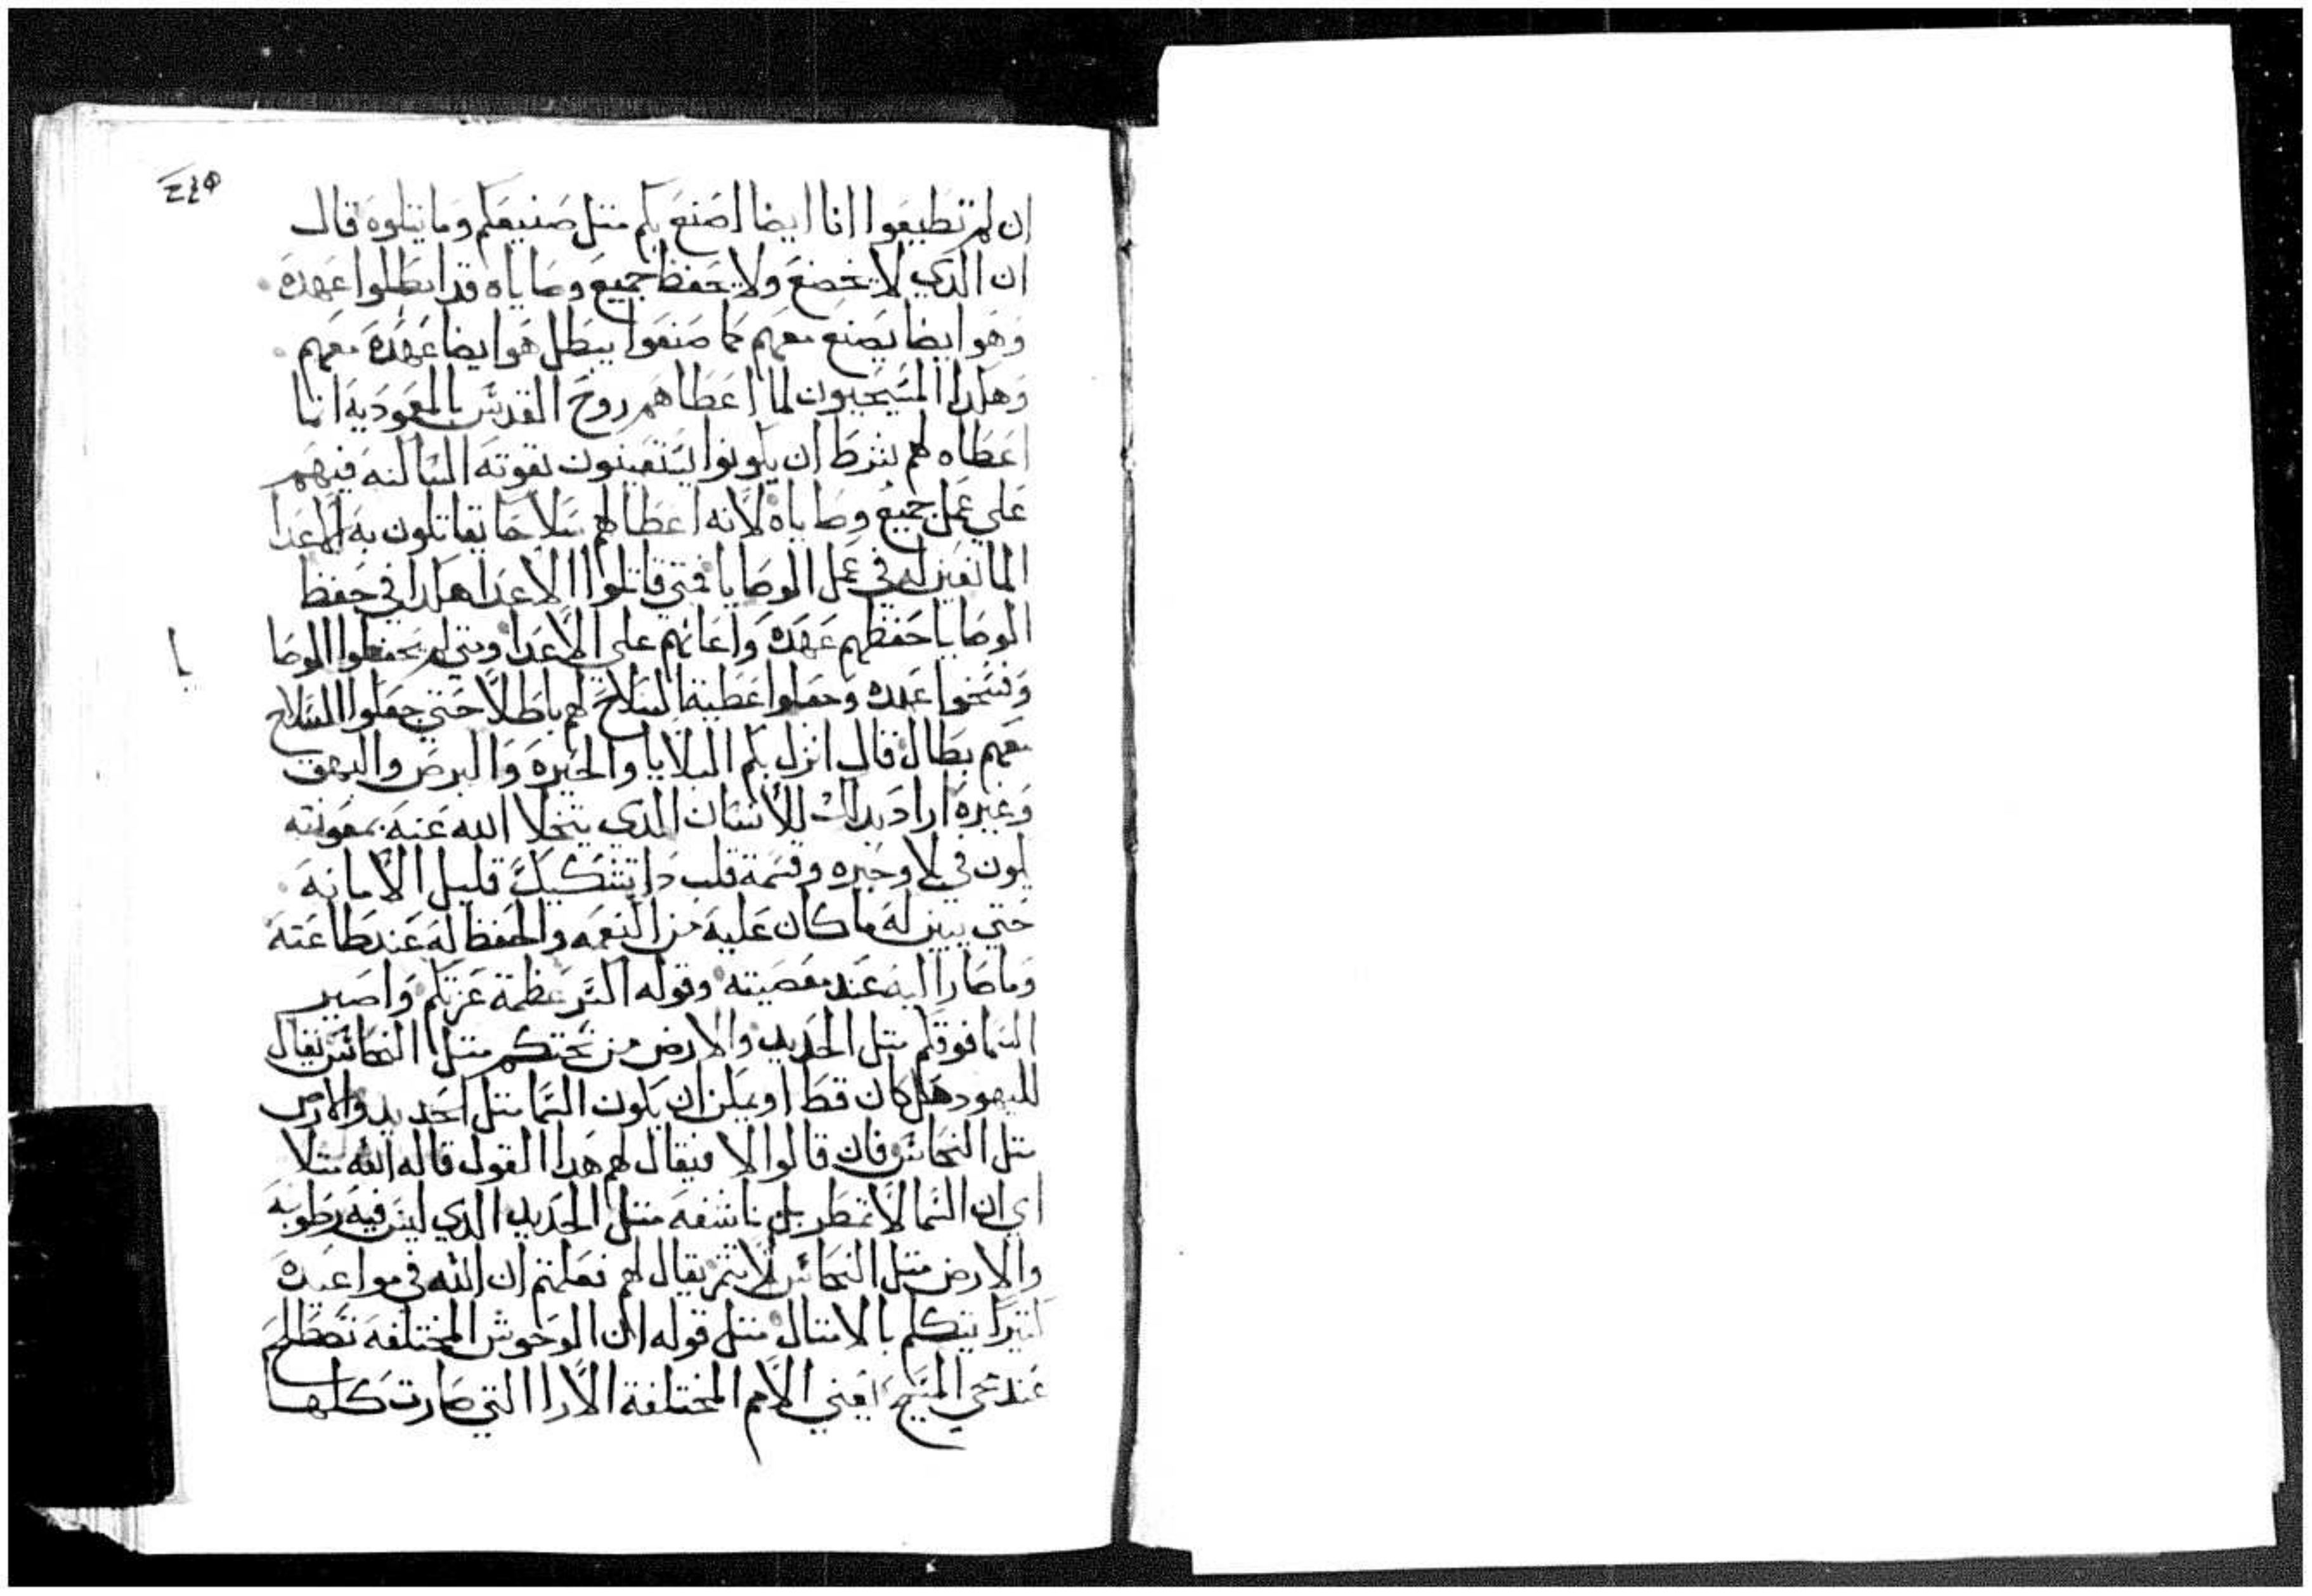 ان لم تطيعوا انا ايضا اصنع بكم متل صنيعكم وما يتلوه قال
ان الدي لا يخضع ولا يحفظ جميع وصاياه قد ابطلوا عهده
وهو ايضا يصنع معهم كما صنعوا يبطل هو ايضا عهده معهم
وهكدا المسيحيون لما اعطاهم روح القدس بالمعمودية انما
اعطاه لهم بشرط ان يكونوا يستعينون بقوته الساكنه فيهم
على عمل جميع وصاياه لانه اعطا لهم سلاحا يقاتلون به الاعدا
المانعين لهم في عمل الوصايا فمتي قاتلوا الاعدا هكدا في حفظ
الوصايا حفظهم عهده واعانهم علي الاعدا ومتي لم يحفظوا الوصا
يا
وفسخوا عهده وجعلوا عطية السلاح لهم باطلا حتي جعلوا السلاح
معهم بطال قال انزل بكم البلايا والحيره والبرص والبهق
وغيره اراد بدلك للانسان الدي يتخلا الله عنه بمعونته
يكون في بلا وحيره وقسمة قلب دا تشكيك قليل الامانه
حتي يبين له ما كان عليه من النعمه والحفظ له عند طاعته
وما صار اليه عند معصيته وقوله اكسر عظمة عزتكم واصير
السما فوقكم متل الحديد والارض من تحتكم متل النحاس يقال
لليهود هل كان قط او يمكن ان يكون السما متل الحديد والارض
متل النحاس فان قالوا لا فيقال لهم هدا القول قاله الله متلا
اي ان السما لا تمطر بل ناشفه متل الحديد الدي ليس فيه رطوبه
والارض متل النحاس لا تتمر يقال لهم فعلمتم ان الله في مواعيده
كتيرا يتكلم بالامتال متل قوله ان الوحوش المختلفه تصطلح
عند مجي المسيح يعني الامم المختلفة الارا التي صارت كلها